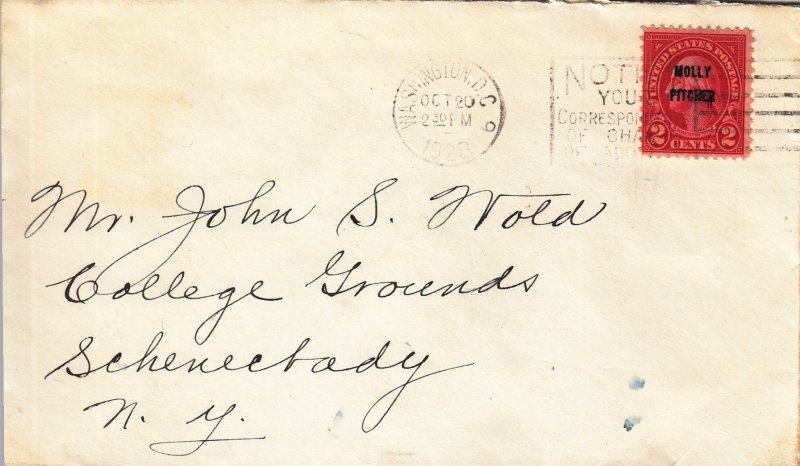 WASHINGTON, D.C.
OCT 20
2 30 PM
1928
9
NOTI
YOU
CORRESPON
OF CHA
OF ADD
UNITED STATES POSTAGE
MOLLY
PITCHER
2 CENTS 2
Mr. John S. Wold
College Grounds
Schenectady
N. Y.